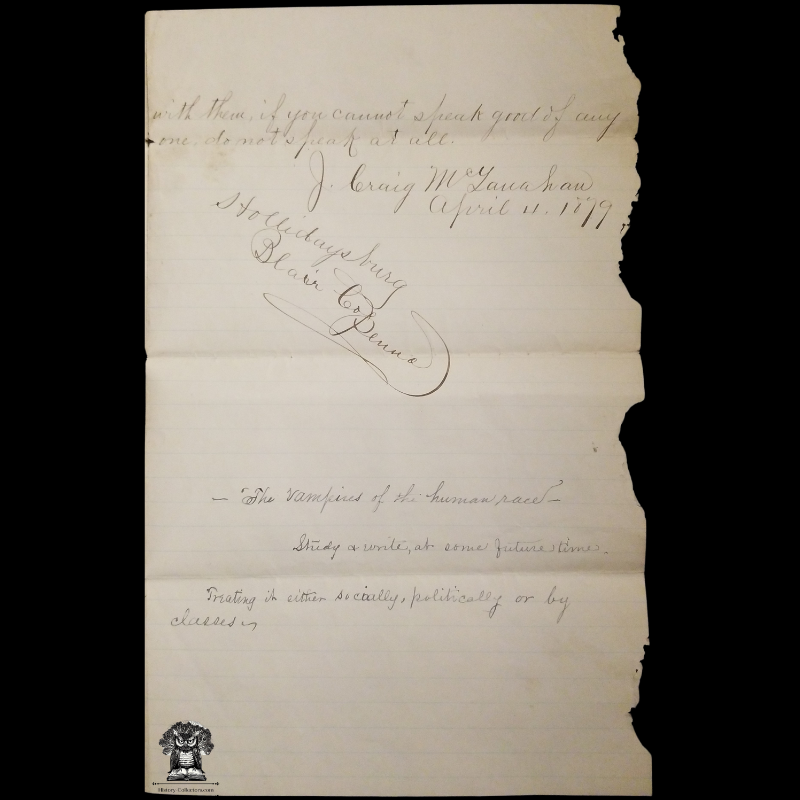 with them, if you cannot speak good of any
one, do not speak at all.
J. Craig McLanahan
April 4. 1879
Hollidaysburg
Blair Co
Penna
— The Vampires of the human race —
Study & write, at some future time.
Treating it either socially, politically or by
classes
History-Collectors.com